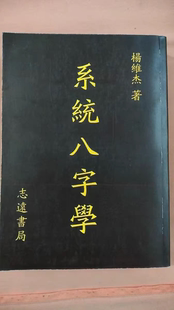 楊維杰 著
系統八字學
志遠書局